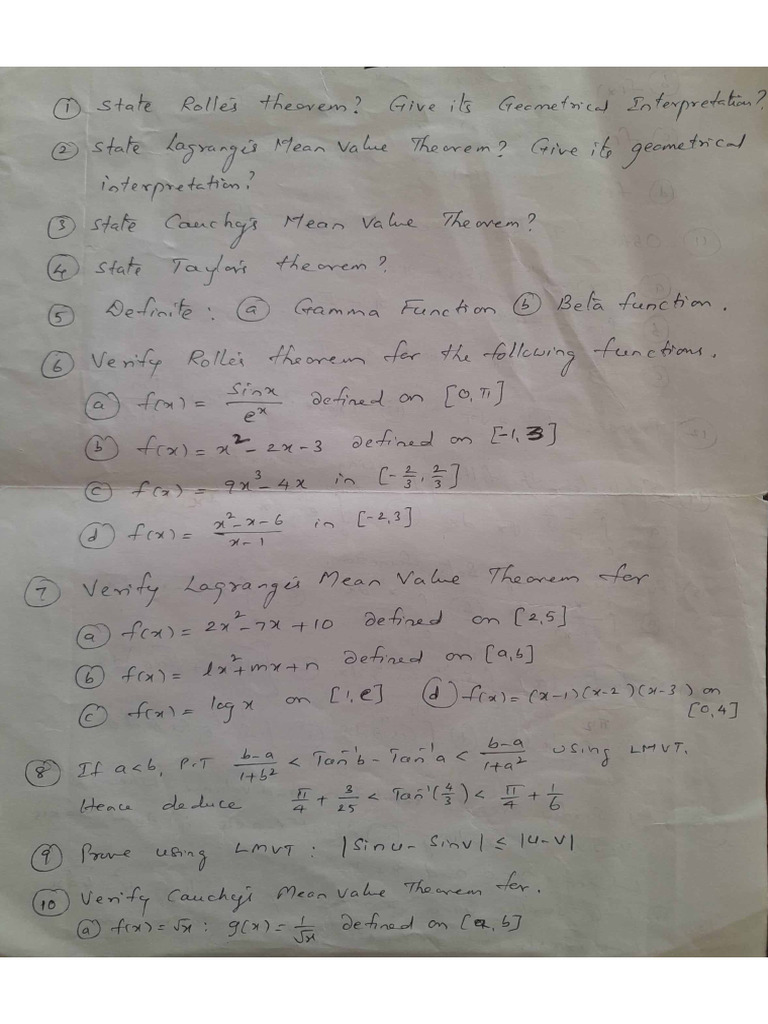 ① State Rolle's theorem? Give its Geometrical Interpretation?
② State Lagrange's Mean Value Theorem? Give its geometrical
interpretation?
③ State Cauchy's Mean Value Theorem?
④ State Taylor's theorem?
⑤ Definite: ⓐ Gamma Function ⓑ Beta function.
⑥ Verify Rolle's theorem for the following functions.
ⓐ f(x) = sinx/e^x defined on [0, π]
ⓑ f(x) = x² - 2x - 3 defined on [-1, 3]
ⓒ f(x) = 9x³ - 4x in [-2/3, 2/3]
ⓓ f(x) = (x² - x - 6)/(x - 1) in [-2, 3]
⑦ Verify Lagrange's Mean Value Theorem for
ⓐ f(x) = 2x² - 7x + 10 defined on [2, 5]
ⓑ f(x) = lx² + mx + n defined on [a, b]
ⓒ f(x) = log x on [1, e] ⓓ f(x) = (x-1)(x-2)(x-3) on
[0, 4]
⑧ If a<b, P.T (b-a)/(1+b²) < Tan⁻¹b - Tan⁻¹a < (b-a)/(1+a²) using LMVT.
Hence deduce π/4 + 3/25 < Tan⁻¹(4/3) < π/4 + 1/6
⑨ Prove using LMVT : |sinu - sinv| ≤ |u-v|
⑩ Verify Cauchy's Mean Value Theorem for.
ⓐ f(x) = √x : g(x) = 1/√x defined on [a, b]